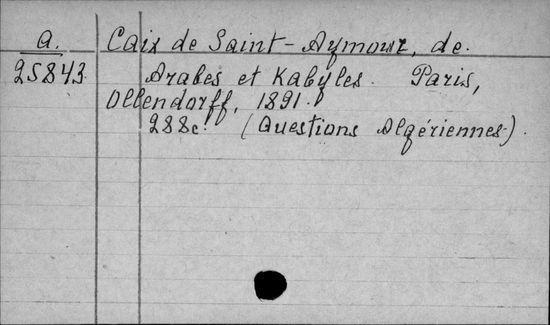 a. Caix de Saint-Aymour, de.
25843 Arabes et Kabyles. Paris,
Ollendorff, 1891.
288c. (Questions Algériennes).